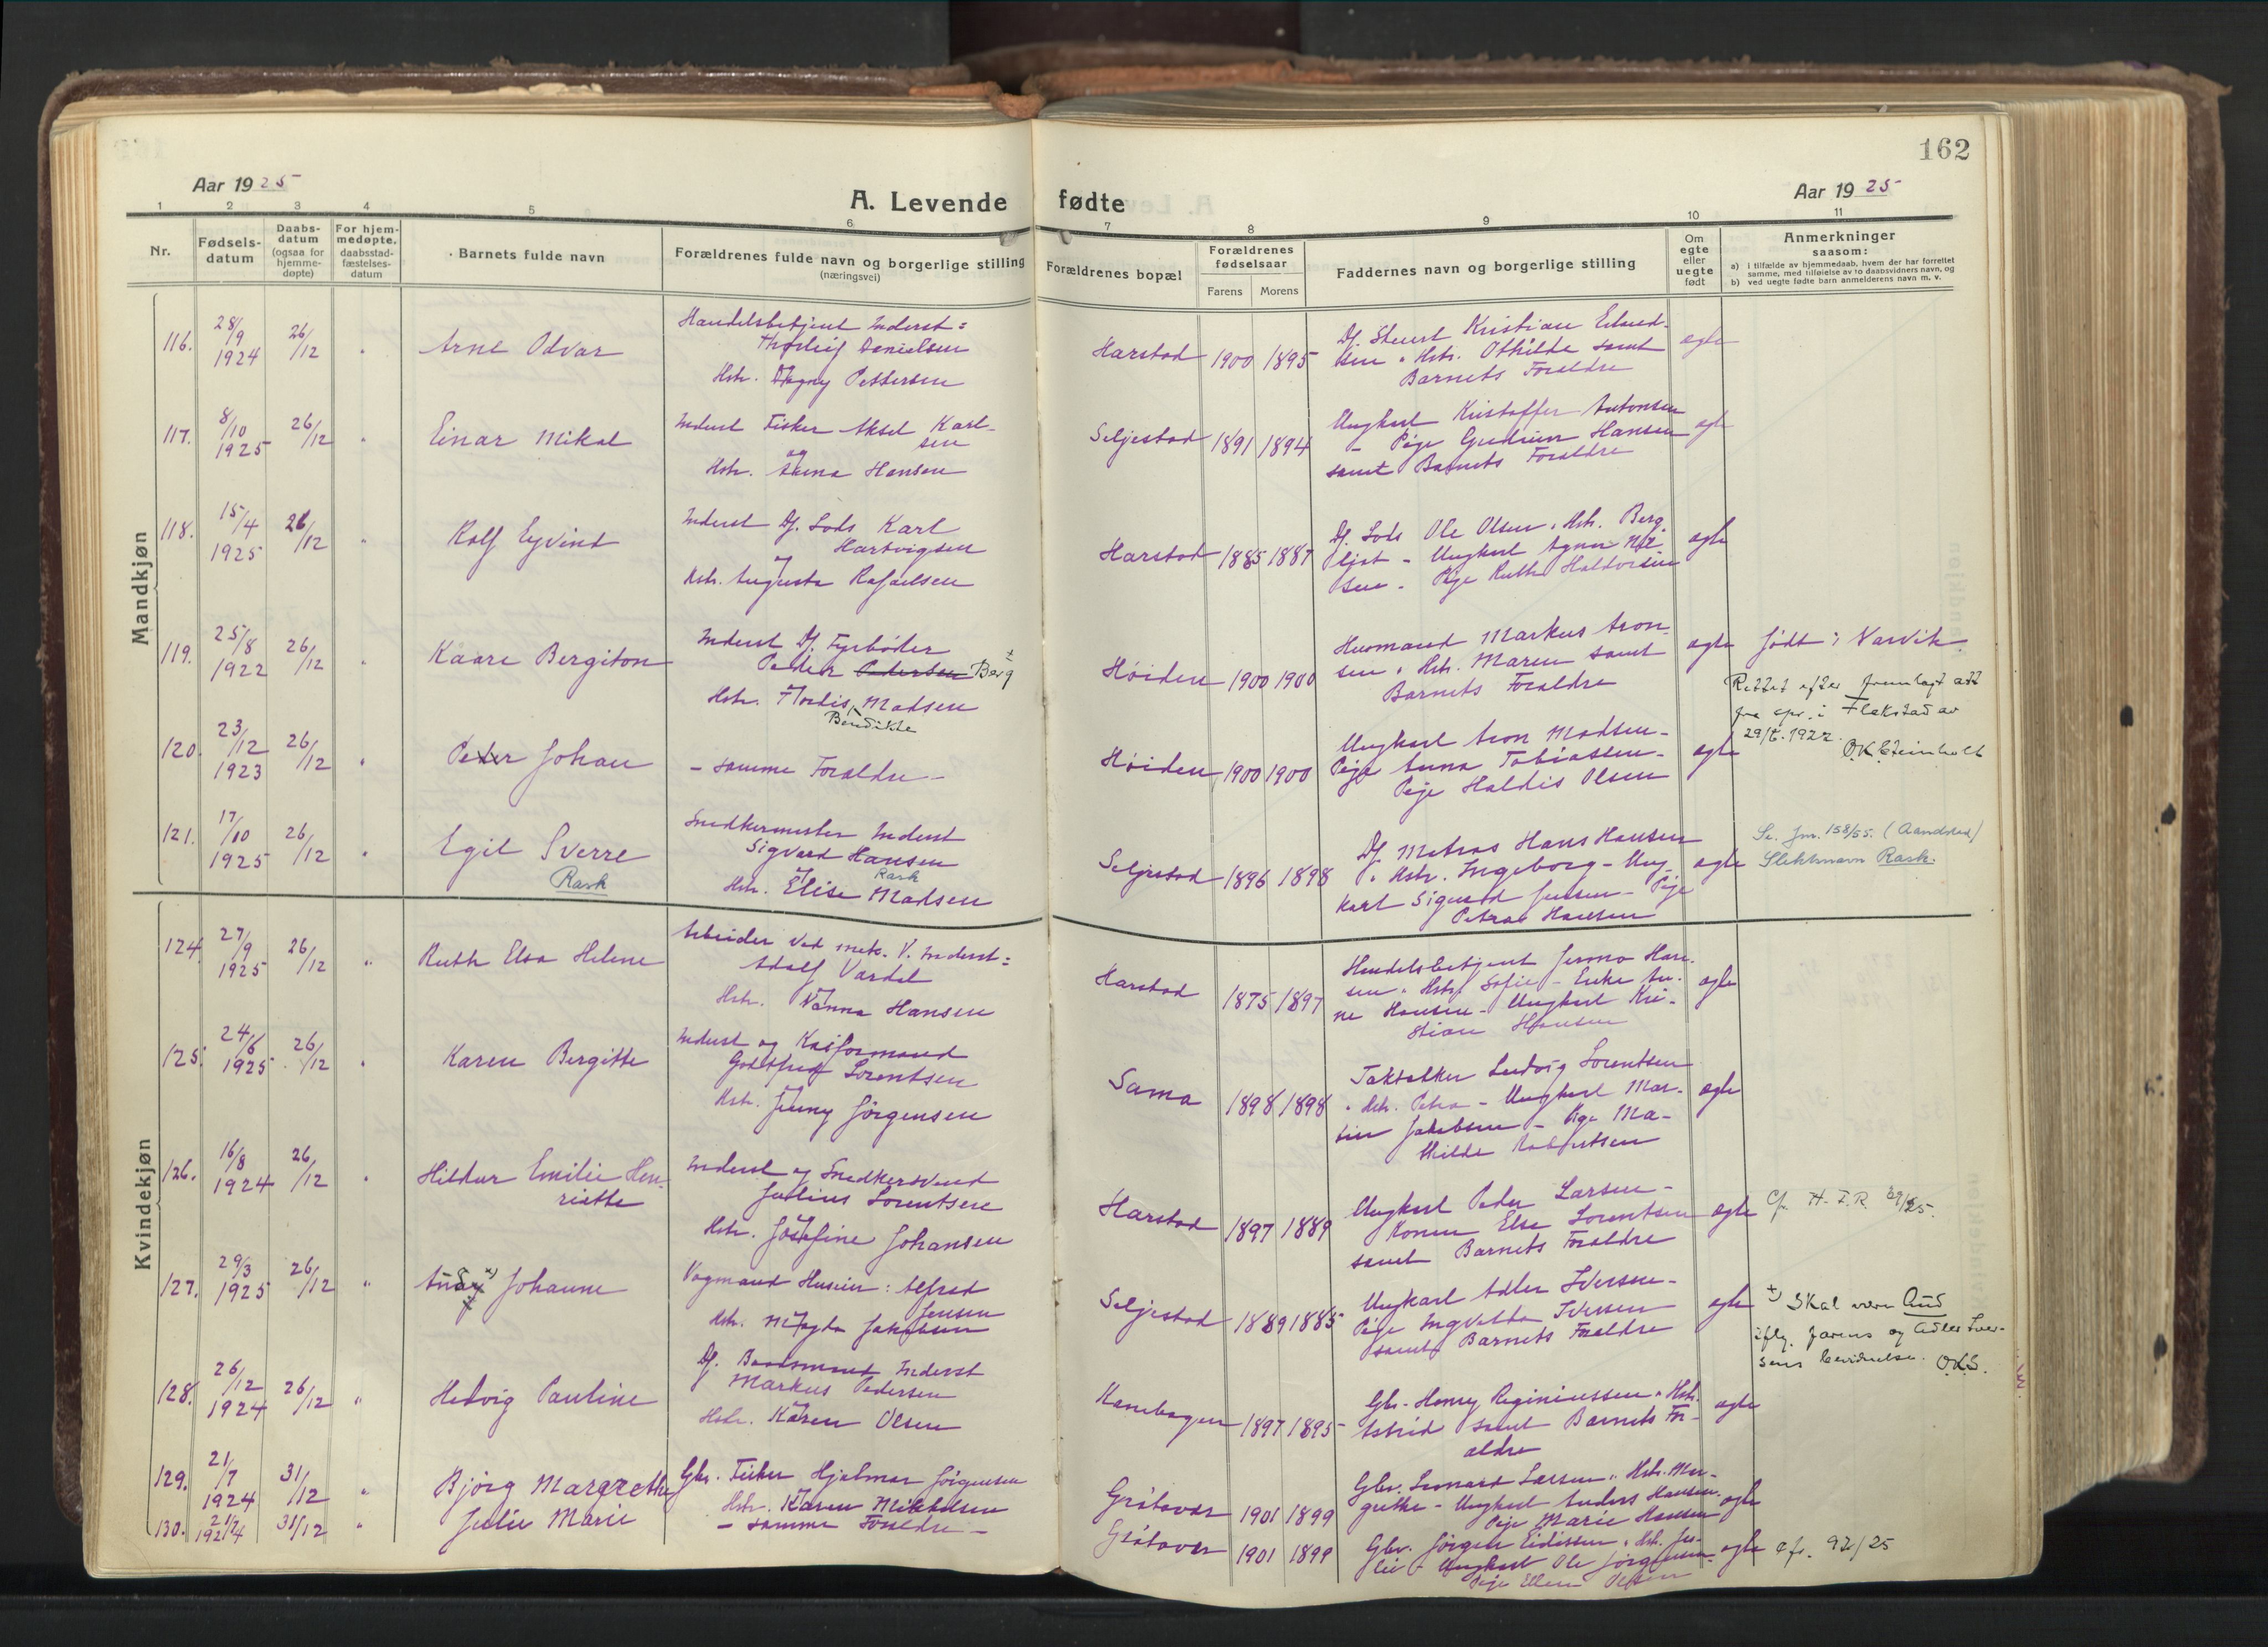 162
Aar 1925
Aar 1925
A. Levende fødte
1 2 3 4 5 6 7 8 9 10 11
Nr.
Fødsels-
datum
Daabs-
datum
(ogsaa for
hjemme-
døpte)
For hjem-
medøpte,
daabsstad-
fæstelses-
datum
Barnets fulde navn
Forældrenes fulde navn og borgerlige stilling
(næringsvei)
Forældrenes bopæl
Forældrenes
fødselsaar
Farens
Morens
Faddernes navn og borgerlige stilling
Om
egte
eller
uegte
født
Anmerkninger
saasom:
a) i tilfælde av hjemmedaab, hvem der har forrettet
samme, med tilføielse av to daabsvidners navn, og
b) ved uegte fødte barn anmelderens navn m. v.
Mandkjøn
116. 28/9 1924 26/12 " Arne Odvar
Handelsbetjent Inderst:
Thorleif Danielsen
og
Hstr. Dagny Pettersen
Harstad 1900 1895
Df. Stuert Kristian Edvard-
sen " Hstr. Othilde samt
Barnets Foraldre
egte
117. 8/10 1925 26/12 " Einar Mikal
Inderst Fisker Aksel Karl-
sen
og
Hstr. Anna Hansen
Seljestad 1891 1894
Ungkarl Kristoffer Antonsen
- Pige Gudrun Hansen
samt Barnets Foraldre
egte
118. 15/4 1925 26/12 " Rolf Eyvind
Inderst Df. Lods Karl
Hartvigsen
og
Hstr. Augusta Rafaelsen
Harstad 1885 1887
Df. Lods Ole Olsen " Hstr. Berg-
ljot - Ungkarl Agnar Nil-
sen - Pige Ruth Haldorsen
egte
119. 25/8 1922 26/12 " Kaare Bergiton
Inderst Df. Fyrbøder
Peder Pedersen Berg +
og
Hstr. Flordis Madsen
Bendikte
Høiden 1900 1900
Husmand Markus Aron-
sen " Hstr. Maren samt
Barnets Foraldre
egte
født i Narvik.
Rettet efter fremlagt att
fra spr. i Flakstad av
29/6.1927.
O.K. Steinholt
120. 23/12 1923 26/12 " Peter Johan
- samme Foraldre -
Høiden 1900 1900
Ungkarl Aron Madsen -
Pige Anna Tobiassen -
Pige Haldis Olsen
egte
121. 17/10 1925 26/12 " Egil Sverre
Rask
Snedkermester Inderst
Sigvard Hansen
og Rask
Hstr. Elise Madsen
Seljestad 1896 1898
Df. Matros Hans Hansen
" Hstr. Ingeborg - Ung-
karl Sigurd Jensen - Pige
Petra Hansen
egte
Se. jnr. 158/55. (Aandstad)
Slektsnavn Rask.
Kvindekjøn
124. 27/9 1925 26/12 " Ruth Elsa Helene
Arbeider ved mek. V. Inderst:
Adolf Vardal
og
Hstr. Nanna Hansen
Harstad 1875 1897
Handelsbetjent Jermo Han-
sen " Hstr. Sofie - Enke An-
ne Hansen - Ungkarl Kri-
stian Hansen
egte
125. 24/6 1925 26/12 " Karen Bergitte
Inderst og Kaiformand
Godtfred Lorentsen
og
Hstr. Jenny Jørgensen
Sama 1898 1898
Ludvig Lorentsen
" Hstr. Petra - Ungkarl Mar-
tin Jakobsen - Pige Ma-
thilde Robertsen
egte
126. 16/8 1924 26/12 " Hildur Emilie Hen-
riette
Inderst og Snedkersvend
Julius Lorentsen
og
Hstr. Josefine Johansen
Harstad 1897 1889
Ungkarl Peder Larsen -
Konen Else Lorentsen
samt Barnets Foraldre
egte
Cfr. H.T.R. 29/25.
127. 29/3 1925 26/12 " Johanne
Vognmand Huseier: Alfred
Jensen
og
Hstr. Magda Jakobsen
Seljestad 1889 1885
Ungkarl Adler Iversen -
Pige Ingvalda Iversen
samt Barnets Foraldre
egte
+) Skal være Aud
iflg. farens og Adler Iver-
sens bevidnelse. O.K.S.
128. 26/12 1924 26/12 " Hedvig Pauline
Df. Baadsmand Inderst
Markus Pedersen
og
Hstr. Karen Olsen
Kanebogen 1897 1895
Gbr. Henry Reginiussen " Hstr.
Astrid samt Barnets For-
aldre
egte
129. 21/7 1924 31/12 " Bjørg Margrethe
Gbr. Fisker Hjalmar Jørgensen
Hstr. Karen Mikkelsen
Grötavær 1901 1899
Gbr. Leonard Larsen " Hstr. Mar-
grethe - Ungkarl Anders Hansen
Pige Marie Hansen
egte
130. 21/7 1924 31/12 " Julie Marie
- samme Foraldre -
Grötavær 1901 1899
Gbr. Jørgen Eidissen " Hstr. Ju-
lie - Ungkarl Ole Jørgensen -
Pige Ellen Olsen
egte
cfr. 92/25